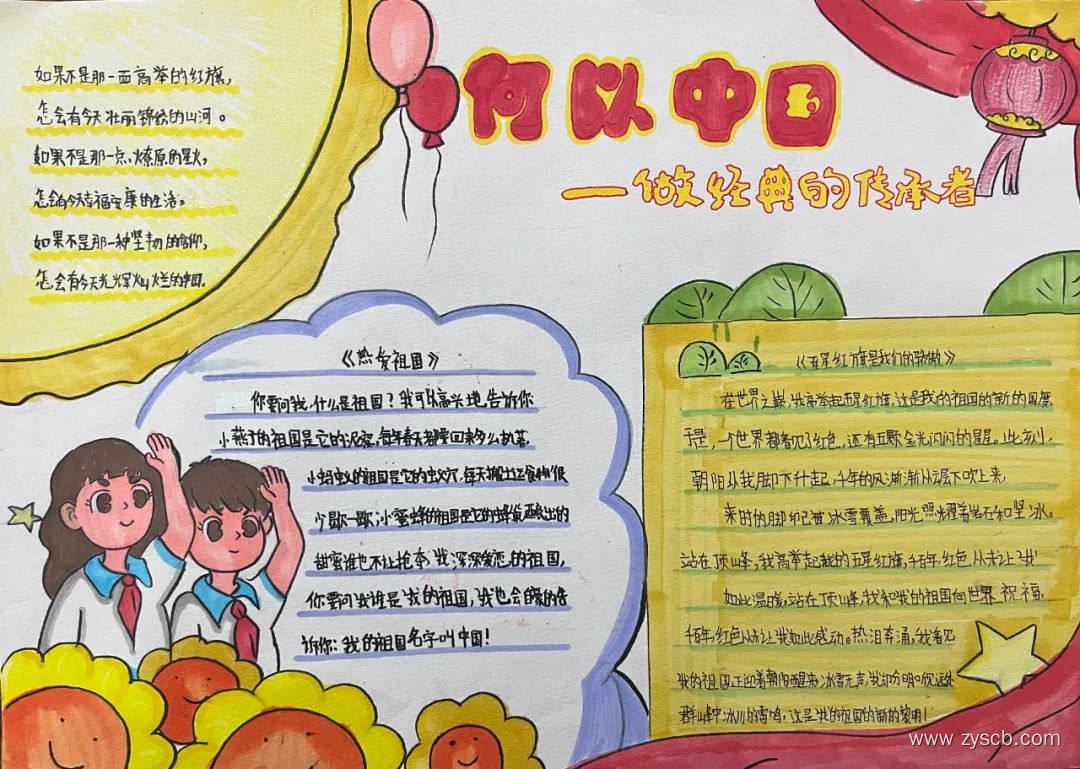 何以中国
—做经典的传承者
如果不是那一面高举的红旗，
怎会有今天壮丽锦绣的山河。
如果不是那一点燎原的星火，
怎会有今天幸福安康的生活。
如果不是那一种坚韧的信仰，
怎会有今天光辉灿烂的中国。
《热爱祖国》
你要问我，什么是祖国？我可以高兴地告诉你
小燕子的祖国是它的泥窝，每年春天都要回来多么执著
小蚂蚁的祖国是它的蚁穴，每天搬土运食物很
少歇一歇；小蜜蜂的祖国是它的蜂巢酿出的
甜蜜谁也不让抢夺；我深深爱恋的祖国，
你要问我谁是我的祖国，我也会的告
诉你：我的祖国名字叫中国！
《五星红旗是我们的骄傲》
在世界之巅，我高举起五星红旗，这是我的祖国的新的国度
于是，一个世界都看见了红色，还有五颗金光闪闪的星星。此刻，
朝阳从我脚下升起，千年的风渐渐从崖下吹上来，
来时的脚印已被冰雪覆盖，阳光照耀着岩石和坚冰。
站在顶峰，我高举起我的五星红旗，千百年，红色从未让我
如此温暖，站在顶峰，我和我的祖国向世界祝福，
千百年，红色从未让我如此感动。热泪奔涌，我看见
我的祖国正迎着朝阳醒来，冰雪无声，我却分明听见远处
群峰中冰川的雷鸣，这是我的祖国的新的黎明！
www.zyscb.com